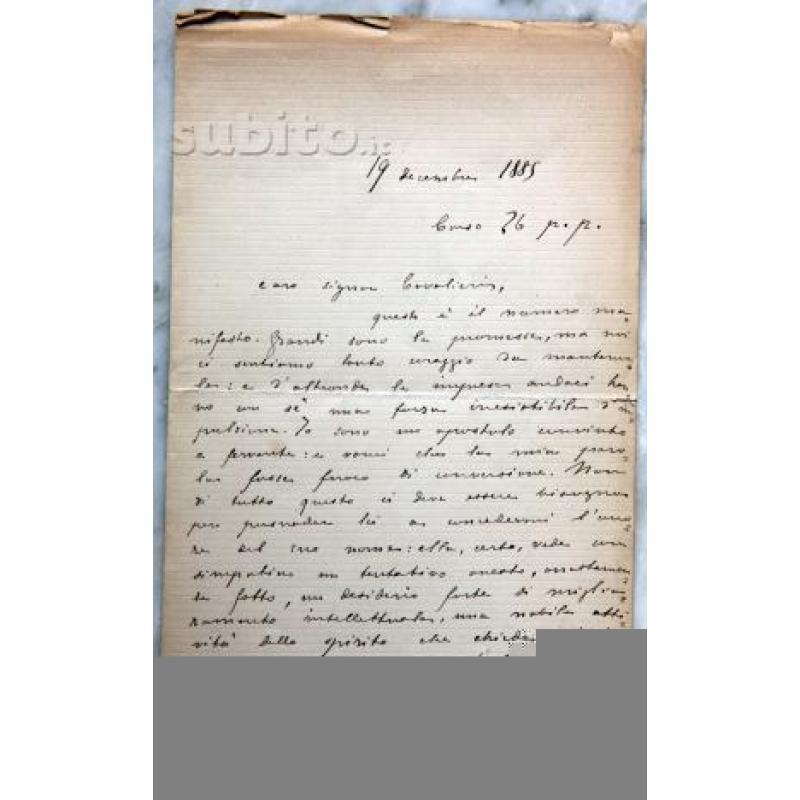 subito.it
19 decembre 1885
Corso 76 p.p.
caro signor Cavalieri,
questo è il numero ma-
nifesto. Grandi sono le promesse, ma noi
ci sentiamo tanto coraggio da mantener-
le: e d'altronde le imprese audaci han-
no in sé una forza irresistibile d'im-
pulsione. Io sono un apostolo convinto
e fervente: e vorrei che la mia paro-
la fosse fuoco di conversione. Non
di tutto questo ci deve essere bisogno
per persuadere lei a concedermi l'ono-
re del suo nome: ella, certo, vede con
simpatia un tentativo onesto, onestamen-
te fatto, un desiderio forte di miglio-
ramento intellettuale, una nobile atti-
vità dello spirito che